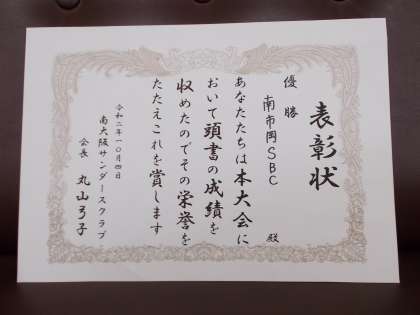 表彰状
優勝
南市岡SBC 殿
あなたたちは本大会に
おいて頭書の成績を
収めたのでその栄誉を
たたえこれを賞します
令和二年一〇月四日
南大阪サンダースクラブ
会長 丸山弓子